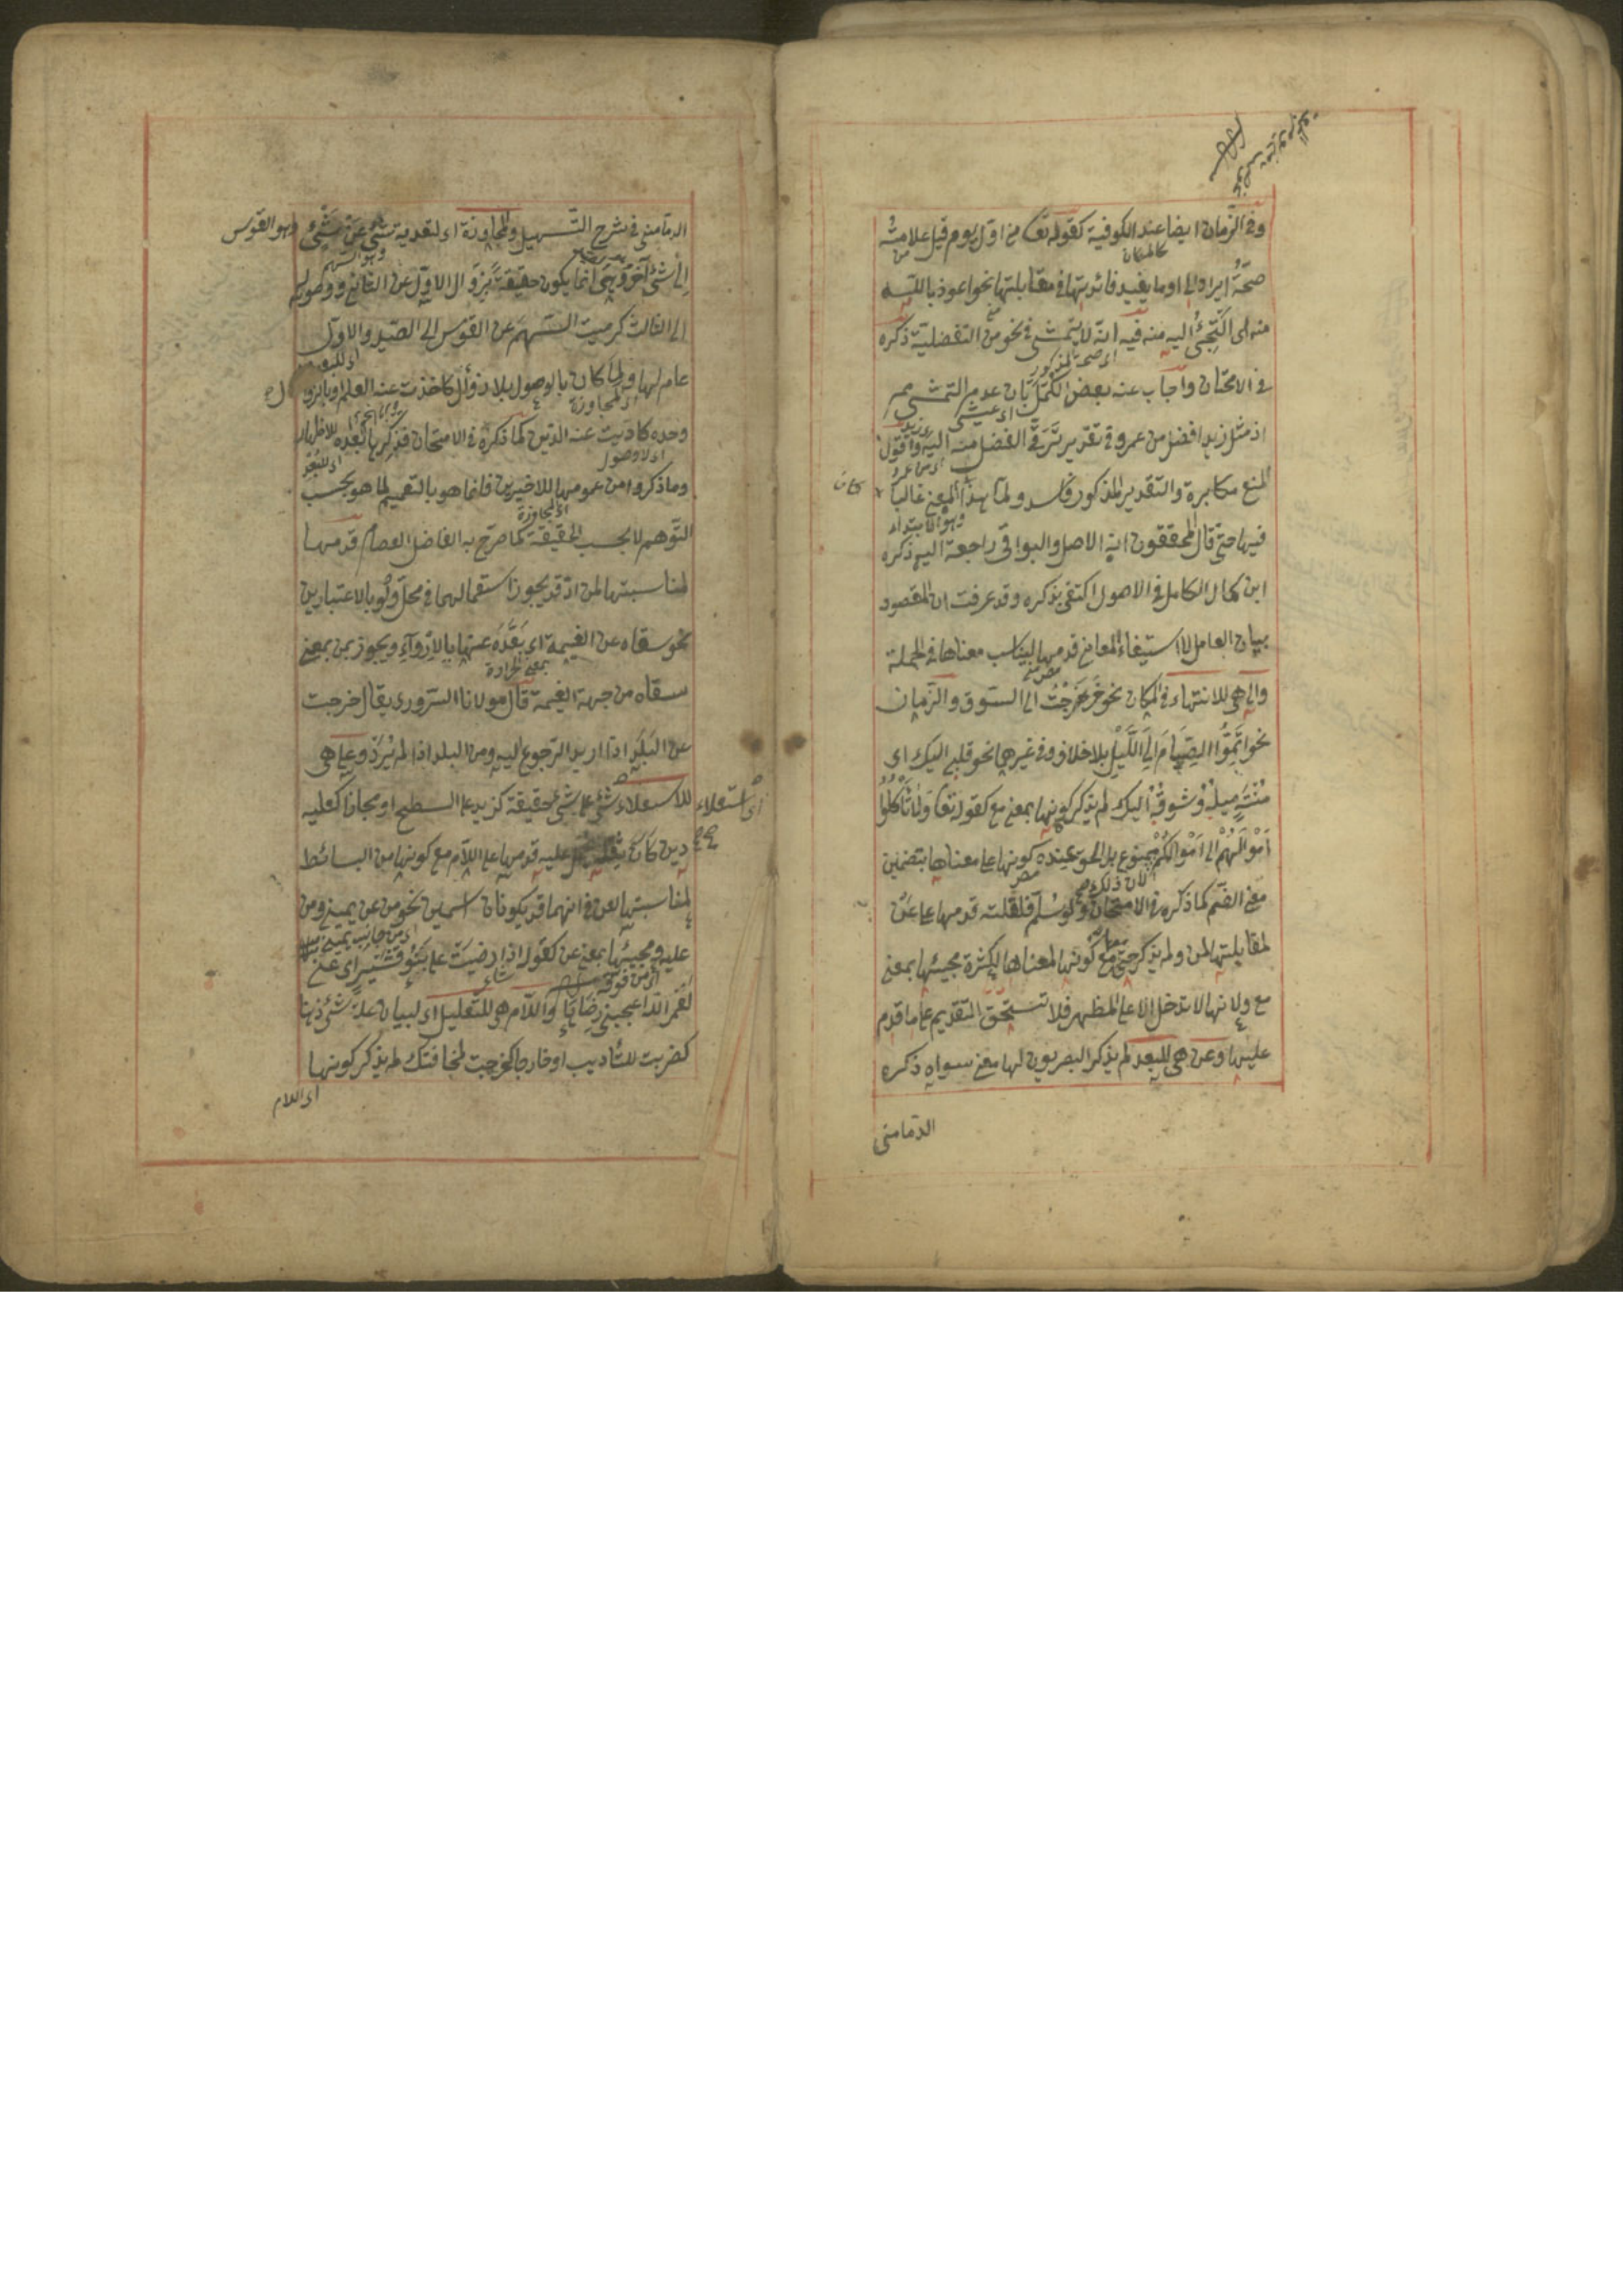 وفى الزمان ايضا عند الكوفية كقوله تع من اول يوم قيل علامته
كالمكان
صحة ايراد الى او ما يفيد فائدتها فى مقابلتها نحو اعوذ بالله
منه اى التجئ اليه منه فيه انه لا يتمشى فى نحو من التفضلية ذكره
اى صحة المذكور
فى الامتحان واجاب عنه بعض الكمل بان عدم التمشى
اذ مثل زيد افضل من عمرو فى تقدير ترقى الفضل منه اليه واقول
المنع مكابرة والتقدير المذكور فاسد ولما كان هذا المعنى غالبا
وهو الابتداء
فيها حتى قال المحققون انه الاصل والبواقى راجعة اليه ذكره
ابن كمال الكامل فى الاصول اكتفى بذكره وقد عرفت ان المقصود
بيان العامل لا استيفاء المعانى قدمها ليناسب معناها فى الجملة
والى هى للانتهاء فى المكان نحو خرجت الى السوق والزمان
نحو اتموا الصيام الى الليل بلا خلاف وفى غيرهما نحو قلبى اليك اى
منته ميله وشوقه اليك لم يذكر كونها بمعنى مع كقوله تعا ولا تأكلوا
اموالهم الى اموالكم ممنوع بل الحق عنده كونها على معناها بتضمين
لان ذلك
معنى الضم كما ذكره فى الامتحان ولو سلم فلقلته قدمها على عن
لمقابلتها لمن ولم يذكر حتى مع كونها لمعناها لكثرة مجيئها بمعنى
مع ولانها لا تدخل الا على المظهر فلا تستحق التقديم على ما قدم
عليها وعن هى للبعد لم يذكر البصريون لها معنى سواه ذكره
الدمامنى
الدمامنى فى شرح التسهيل والمجاوزة اى لتعدية شئ عن شئ وهو القوس
وهو السهم
الى شئ آخر وهى انما يكون حقيقة بزوال الاول عن الثانى ووصوله
الى الثالث كرميت السهم عن القوس الى الصيد والاول
عام لها ولما كان بالوصول بلا زوال كاخذت عنه العلم او بالزوال
اى المجاوزة
وحده كاديت عنه الدين كما ذكره فى الامتحان فذكرها بعده للاظهار
اى لا وصول
وما ذكروا من عمومها للاخيرين فانما هو بالتعميم لما هو بحسب
اى المجاوزة
التوهم لا بحسب الحقيقة كما صرح به الفاضل العصام قدمها
لمناسبتها لمن اذ قد يجوز استعمالهما فى محل ولو بالاعتبارين
نحو سقاه عن الغيمة اى بعده عنها بالارواء ويجوز بمن بمعنى
بمعنى الحرارة
سقاه من جهة الغيمة قال مولانا السرورى يقال خرجت
عن البلد اذا اريد الرجوع اليه ومن البلد اذا لم يرد وعلى هى
للاستعلاء شئ على شئ حقيقة كزيد على السطح او مجازا كعليه
اى استعلاء
دين كان عليه قدمها على اللام مع كونها من البسائط
لمناسبتها لعن فى انهما قد يكونان اسمين نحو من عن يمينى ومن
اى من جانب يمينى
عليه ومجيئها بمعنى عن كقوله اذا رضيت على بنو قشير اى عنى
اى من فوقه
لعمر الله اعجبنى رضاها واللام هى للتعليل اى لبيان علة شئ ذهنا
كضربت للتأديب او خارجا كخرجت لمخافتك لم يذكر كونها
اى اللام